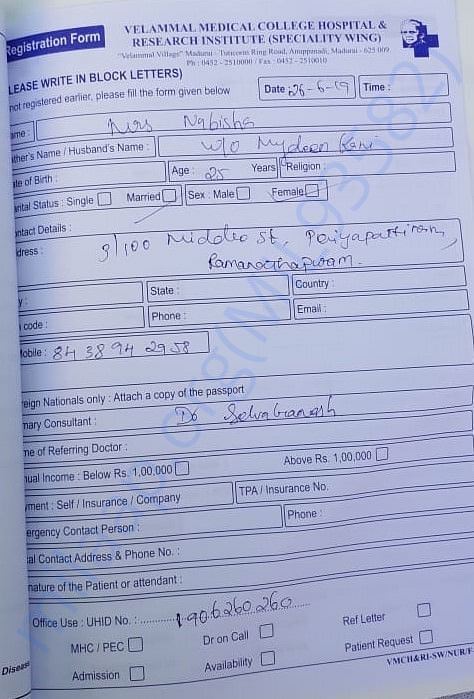 Registration Form
VELAMMAL MEDICAL COLLEGE HOSPITAL &
RESEARCH INSTITUTE (SPECIALITY WING)
"Velammal Village" Madurai - Tuticorin Ring Road, Anuppanadi, Madurai - 625 009
Ph : 0452 - 2510000 / Fax : 0452 - 2510010
LEASE WRITE IN BLOCK LETTERS)
not registered earlier, please fill the form given below
Date : 26-6-19 Time :
ame : Mrs Nabisha
ther's Name / Husband's Name : W/O Mydeen Kani
te of Birth : Age : 25 Years Religion :
rital Status : Single Married Sex : Male Female
ntact Details :
dress : 3/100 Middle St,
Ramanathapuram.
y : State : Country :
code : Phone : Email :
Mobile : 84 38 94 2958
reign Nationals only : Attach a copy of the passport
mary Consultant : Dr Selvaganesh
me of Referring Doctor :
nual Income : Below Rs. 1,00,000 Above Rs. 1,00,000
yment : Self / Insurance / Company TPA / Insurance No.
ergency Contact Person : Phone :
al Contact Address & Phone No. :
nature of the Patient or attendant :
Office Use : UHID No. : 1906260260
MHC / PEC Dr on Call Ref Letter
Admission Availability Patient Request
VMCH&RI-SW/NUR/F-
Disease